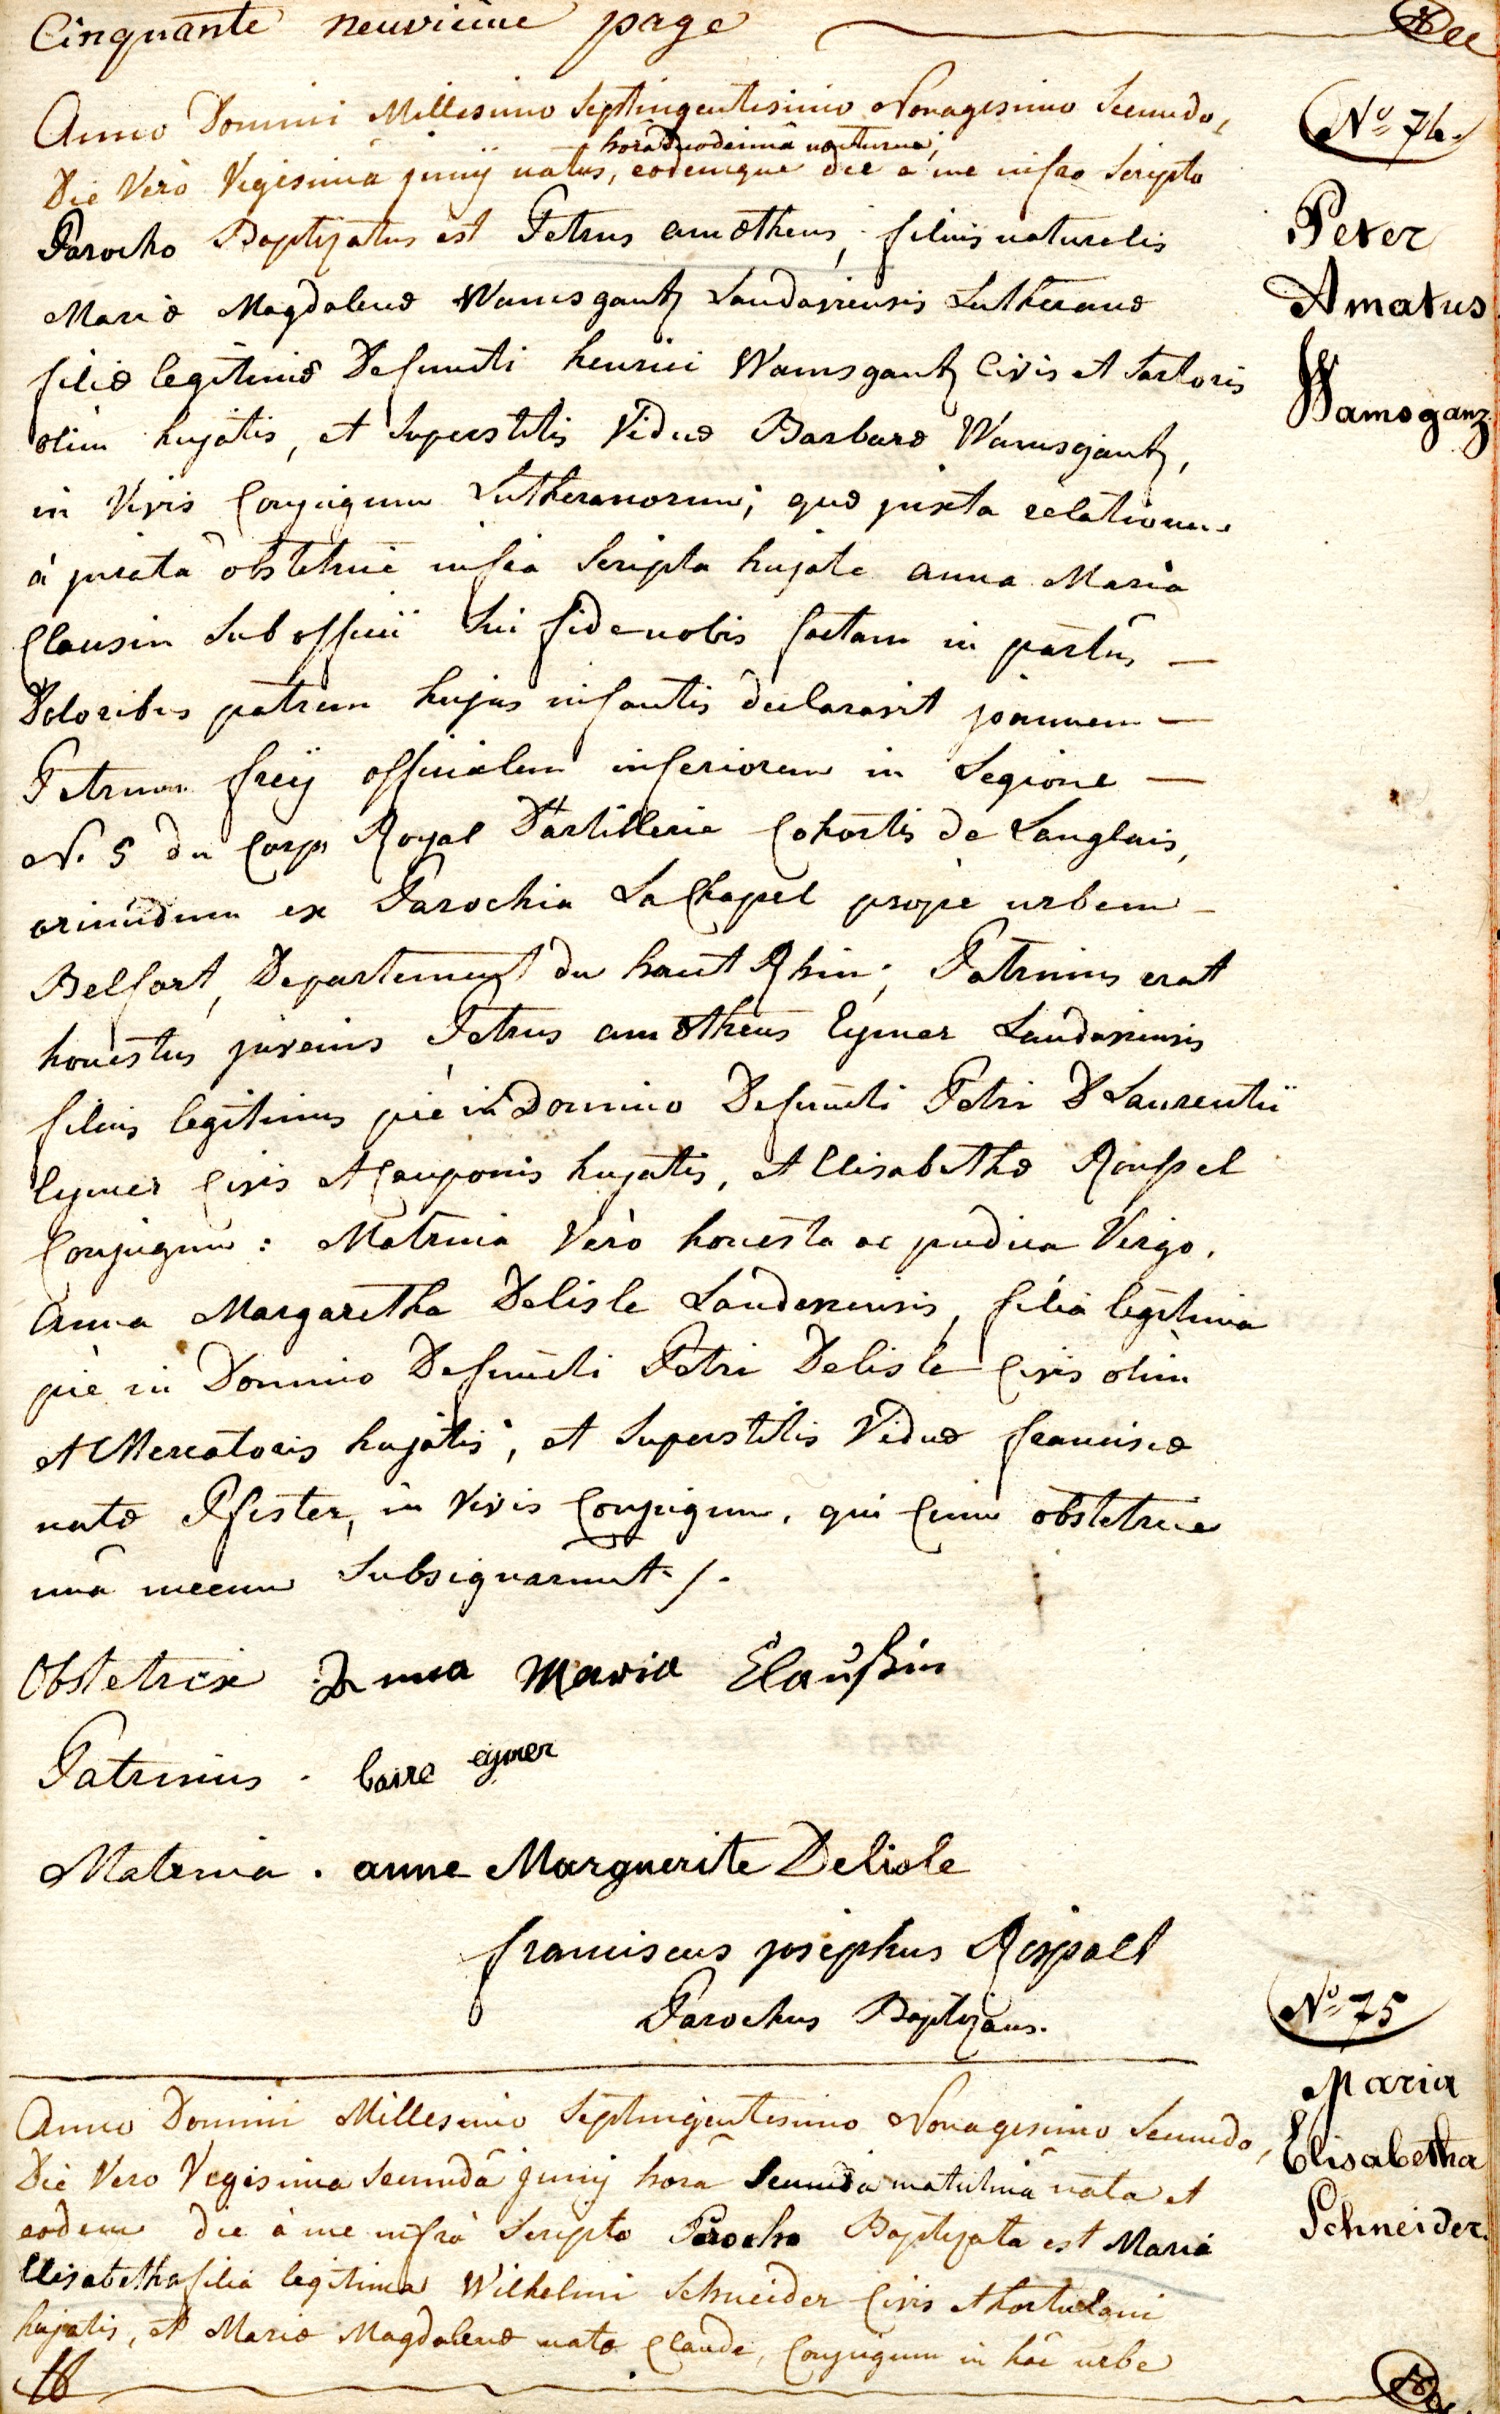 Cinquante neuvieme page
Anno Domini Millesimo Septingentesimo Nonagesimo Secundo,
No. 74.
horâ duodecimâ nocturnâ,
Die Verò Vigesimâ junij natus, eodemque die a me infra Scripto
Parocho Baptizatus est Petrus amatheus, filius naturalis
Peter
Amatus
Wamsganz
Mariæ Magdalenæ Wamsgantz Landaviensis Lutheranæ
filiæ legitimæ Defuncti henrici Wamsgantz Civis et Sartoris
olim hujatis, et Superstitis Viduæ Barbaræ Wamsgantz,
in Vivis Conjugum Lutheranorum; quæ juxta relationem
à jurata obstetrice infra Scripta hujate anna Maria
Clausin Sub officii Sui fide nobis factam in partûs —
Doloribus patrem hujus infantis declaravit joannem —
Petrum freij officialem inferiorem in Legione —
N. 5 du Corps Royal D'artillerie Cohortis de Langlais,
oriundum ex Parochia La Chapel propè urbem —
Belfort, Departement du haut Rhin; Patrinus erat
honestus juvenis Petrus amatheus Eymer Landaviensis
filius legitimus piè in Domino Defuncti Petri Laurentii
Eymer Civis et Cauponis hujatis, et Elisabethæ Roussel
Conjugum: Matrina Verò honesta ac pudica Virgo.
Anna Margaretha Delisle Landaviensis, filia legitima
piè in Domino Defuncti Petri Delisle Civis olim
et Mercatoris hujatis, et Superstitis Viduæ franciscæ
natæ Pfister, in Vivis Conjugum, qui Cum obstetrice
unâ mecum Subsignarunt /.
Obstetrix Anna Maria Claußin
Patrinus . eymer
Matrina . anne Marguerite Delisle
franciscus josephus Rispalt
Parochus Baptizans.
No. 75
Maria
Elisabetha
Schneider.
Anno Domini Millesimo Septingentesimo Nonagesimo Secundo,
Die Vero Vigesima Secundâ junij horâ Secundâ matutinâ nata et
eodem die à me infrà Scripto Parocho Baptizata est Maria
Elisabetha filia legitima Wilhelmi Schneider Civis et hortulani
hujatis, et Mariæ Magdalenæ natæ Claude, Conjugum in hâc urbe